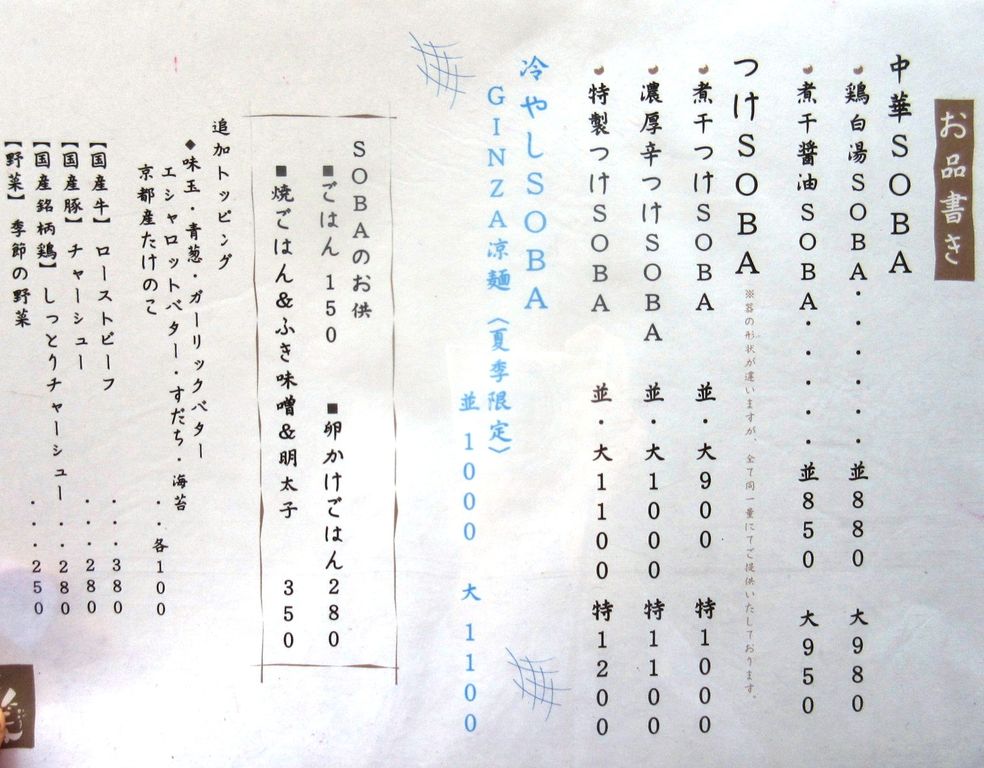 お品書き
中華SOBA
鶏白湯SOBA・・・・・・並880 大980
煮干醤油SOBA・・・・・並850 大950
つけSOBA ※器の形状が違いますが、全て同一量にてご提供いたしております。
煮干つけSOBA 並・大900 特1000
濃厚辛つけSOBA 並・大1000 特1100
特製つけSOBA 並・大1100 特1200
冷やしSOBA
GINZA涼麺〈夏季限定〉
並1000 大1100
SOBAのお供
■ごはん 150 ■卵かけごはん280
■焼ごはん&ふき味噌&明太子 350
追加トッピング
◆味玉・青葱・ガーリックバター
エシャロットバター・すだち・海苔
京都産たけのこ ・・各100
【国産牛】ローストビーフ ・・・380
【国産豚】チャーシュー ・・・280
【国産銘柄鶏】しっとりチャーシュー・・280
【野菜】季節の野菜 ・・・250